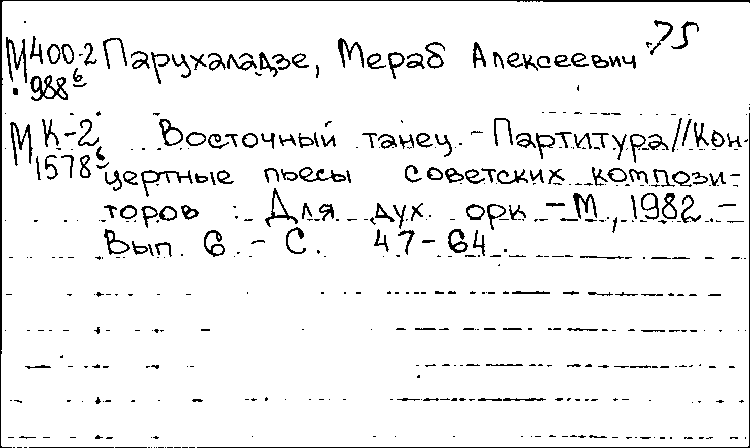 М 400-2 Парцхаладзе, Мераб Алексеевич 75
988 б
М К-2 Восточный танец. - Партитура//Кон-
1578 б цертные пьесы советских компози-
торов : Для дух. орк. - М., 1982. -
Вып. 6. - С. 47-64.